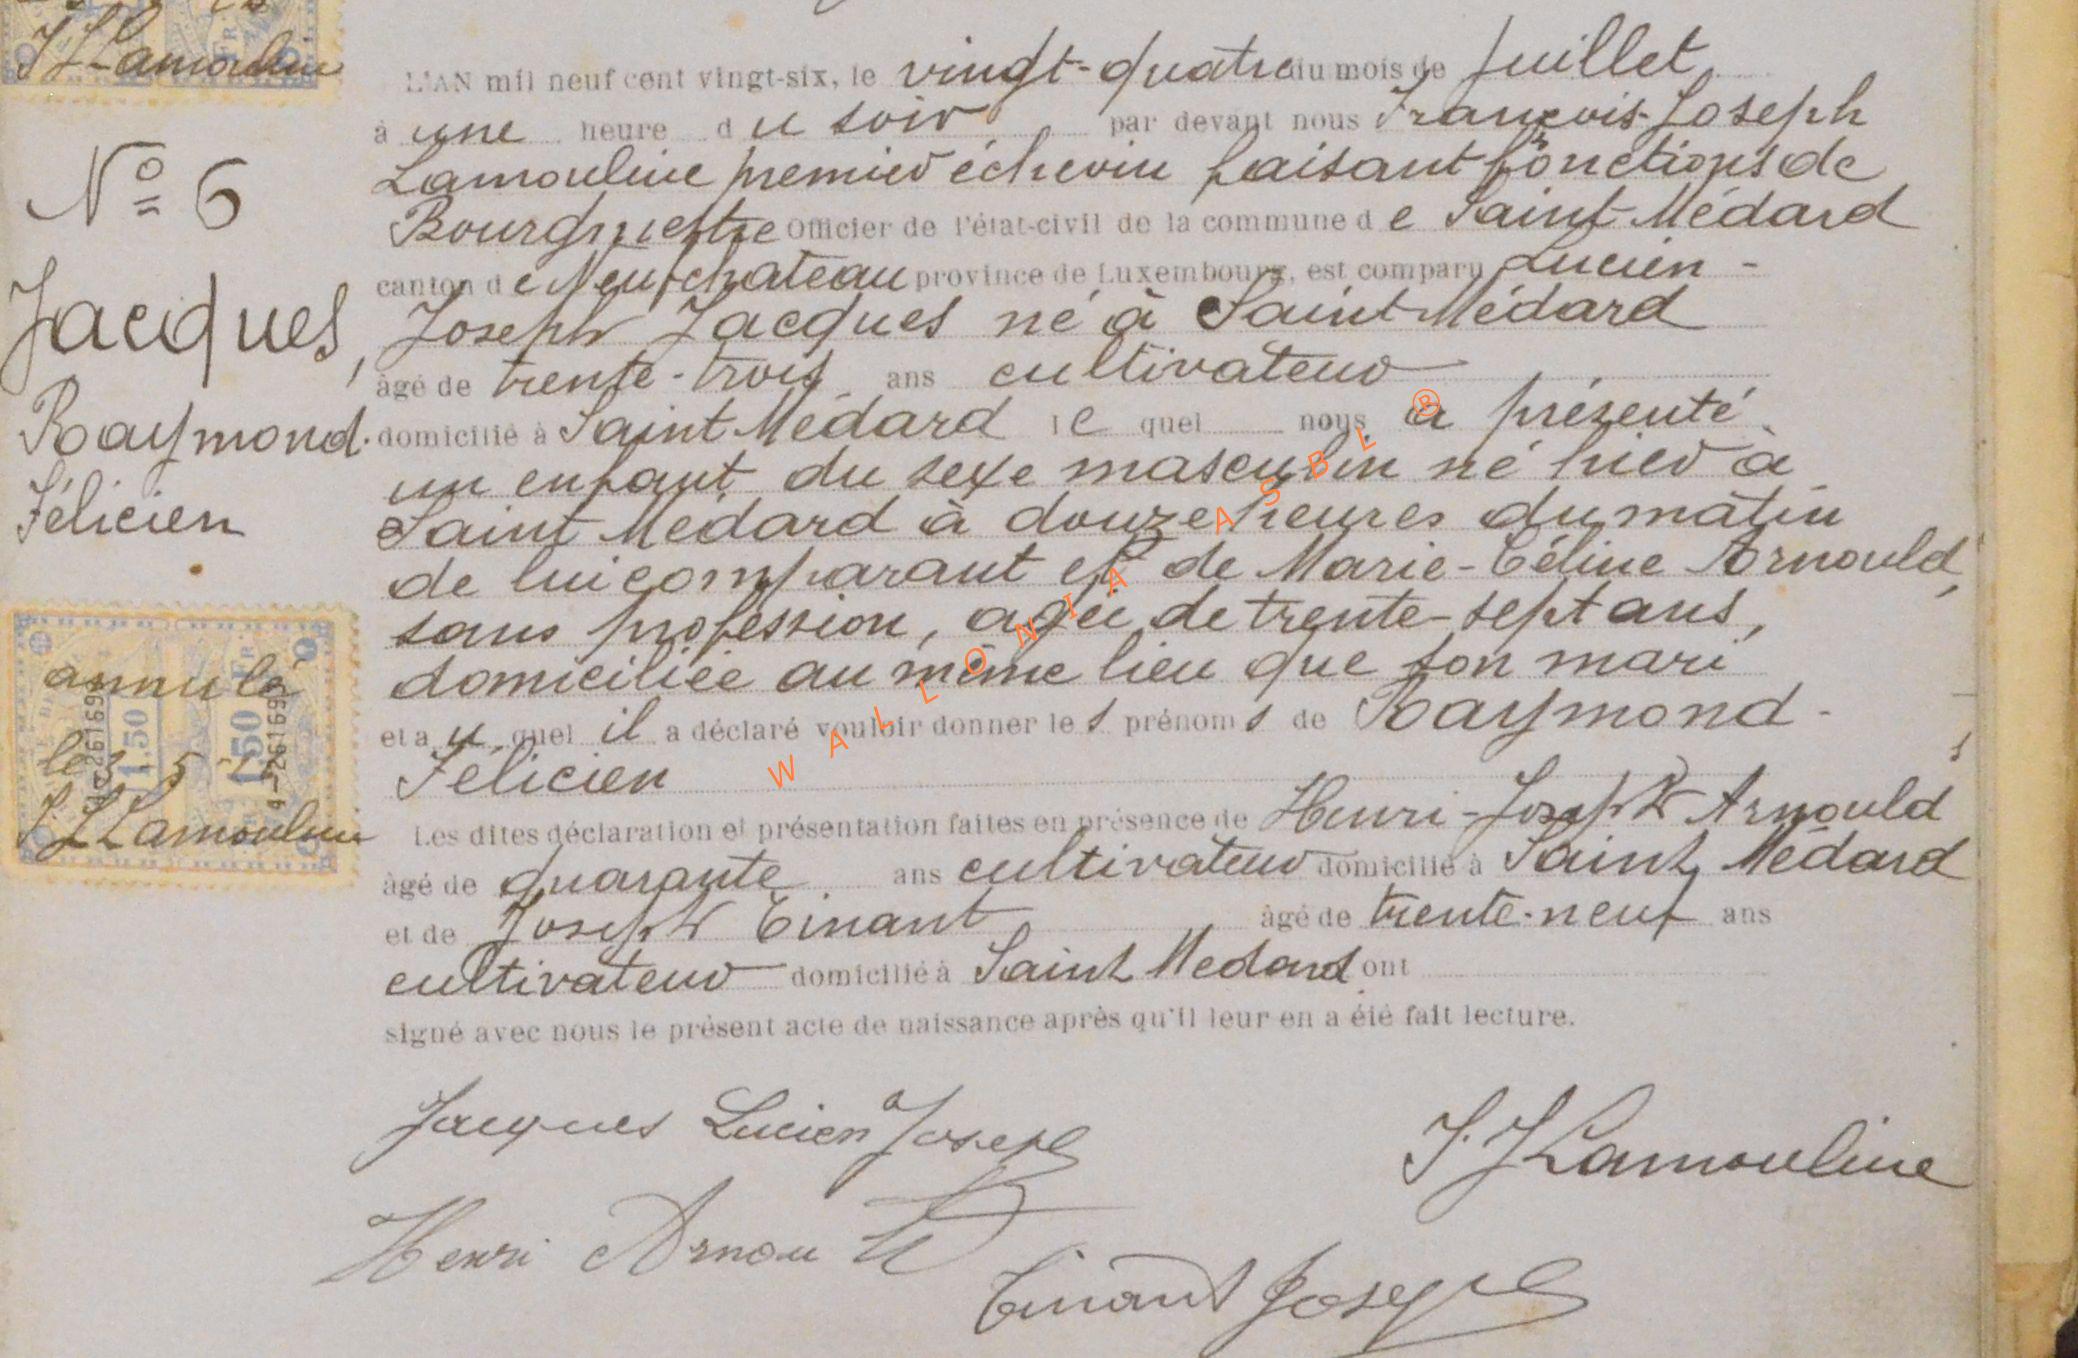 J J Lamouline
N° 6
Jacques,
Raymond.
Félicien
annulé
le 5
J. J Lamouline
1.50
1.50 Fr.
L'AN mil neuf cent vingt-six, le vingt-quatre du mois de Juillet
à une heure du soir par devant nous François-Joseph
Lamouline premier échevin faisant fonctions de
Bourgmestre Officier de l'état-civil de la commune de Saint-Médard
canton de Neufchateau province de Luxembourg, est comparu Lucien-
Joseph Jacques né à Saint-Médard
âgé de trente-trois ans cultivateur
domicilié à Saint Médard lequel nous a présenté
un enfant du sexe masculin né hier à
Saint Médard à douze heures du matin
de lui comparant et de Marie-Céline Arnould,
sans profession, agée de trente-sept ans,
domiciliée au même lieu que son mari
et au quel il a déclaré vouloir donner les prénoms de Raymond-
Félicien
Les dites déclaration et présentation faites en présence de Henri-Joseph Arnould
âgé de quarante ans cultivateur domicilié à Saint Médard
et de Joseph Tinant âgé de trente-neuf ans
cultivateur domicilié à Saint Medard ont
signé avec nous le présent acte de naissance après qu'il leur en a été fait lecture.
Jacques Lucien Joseph
J. J Lamouline
Henri Arnould
Tinant Joseph
WALLONIA ASBL ®